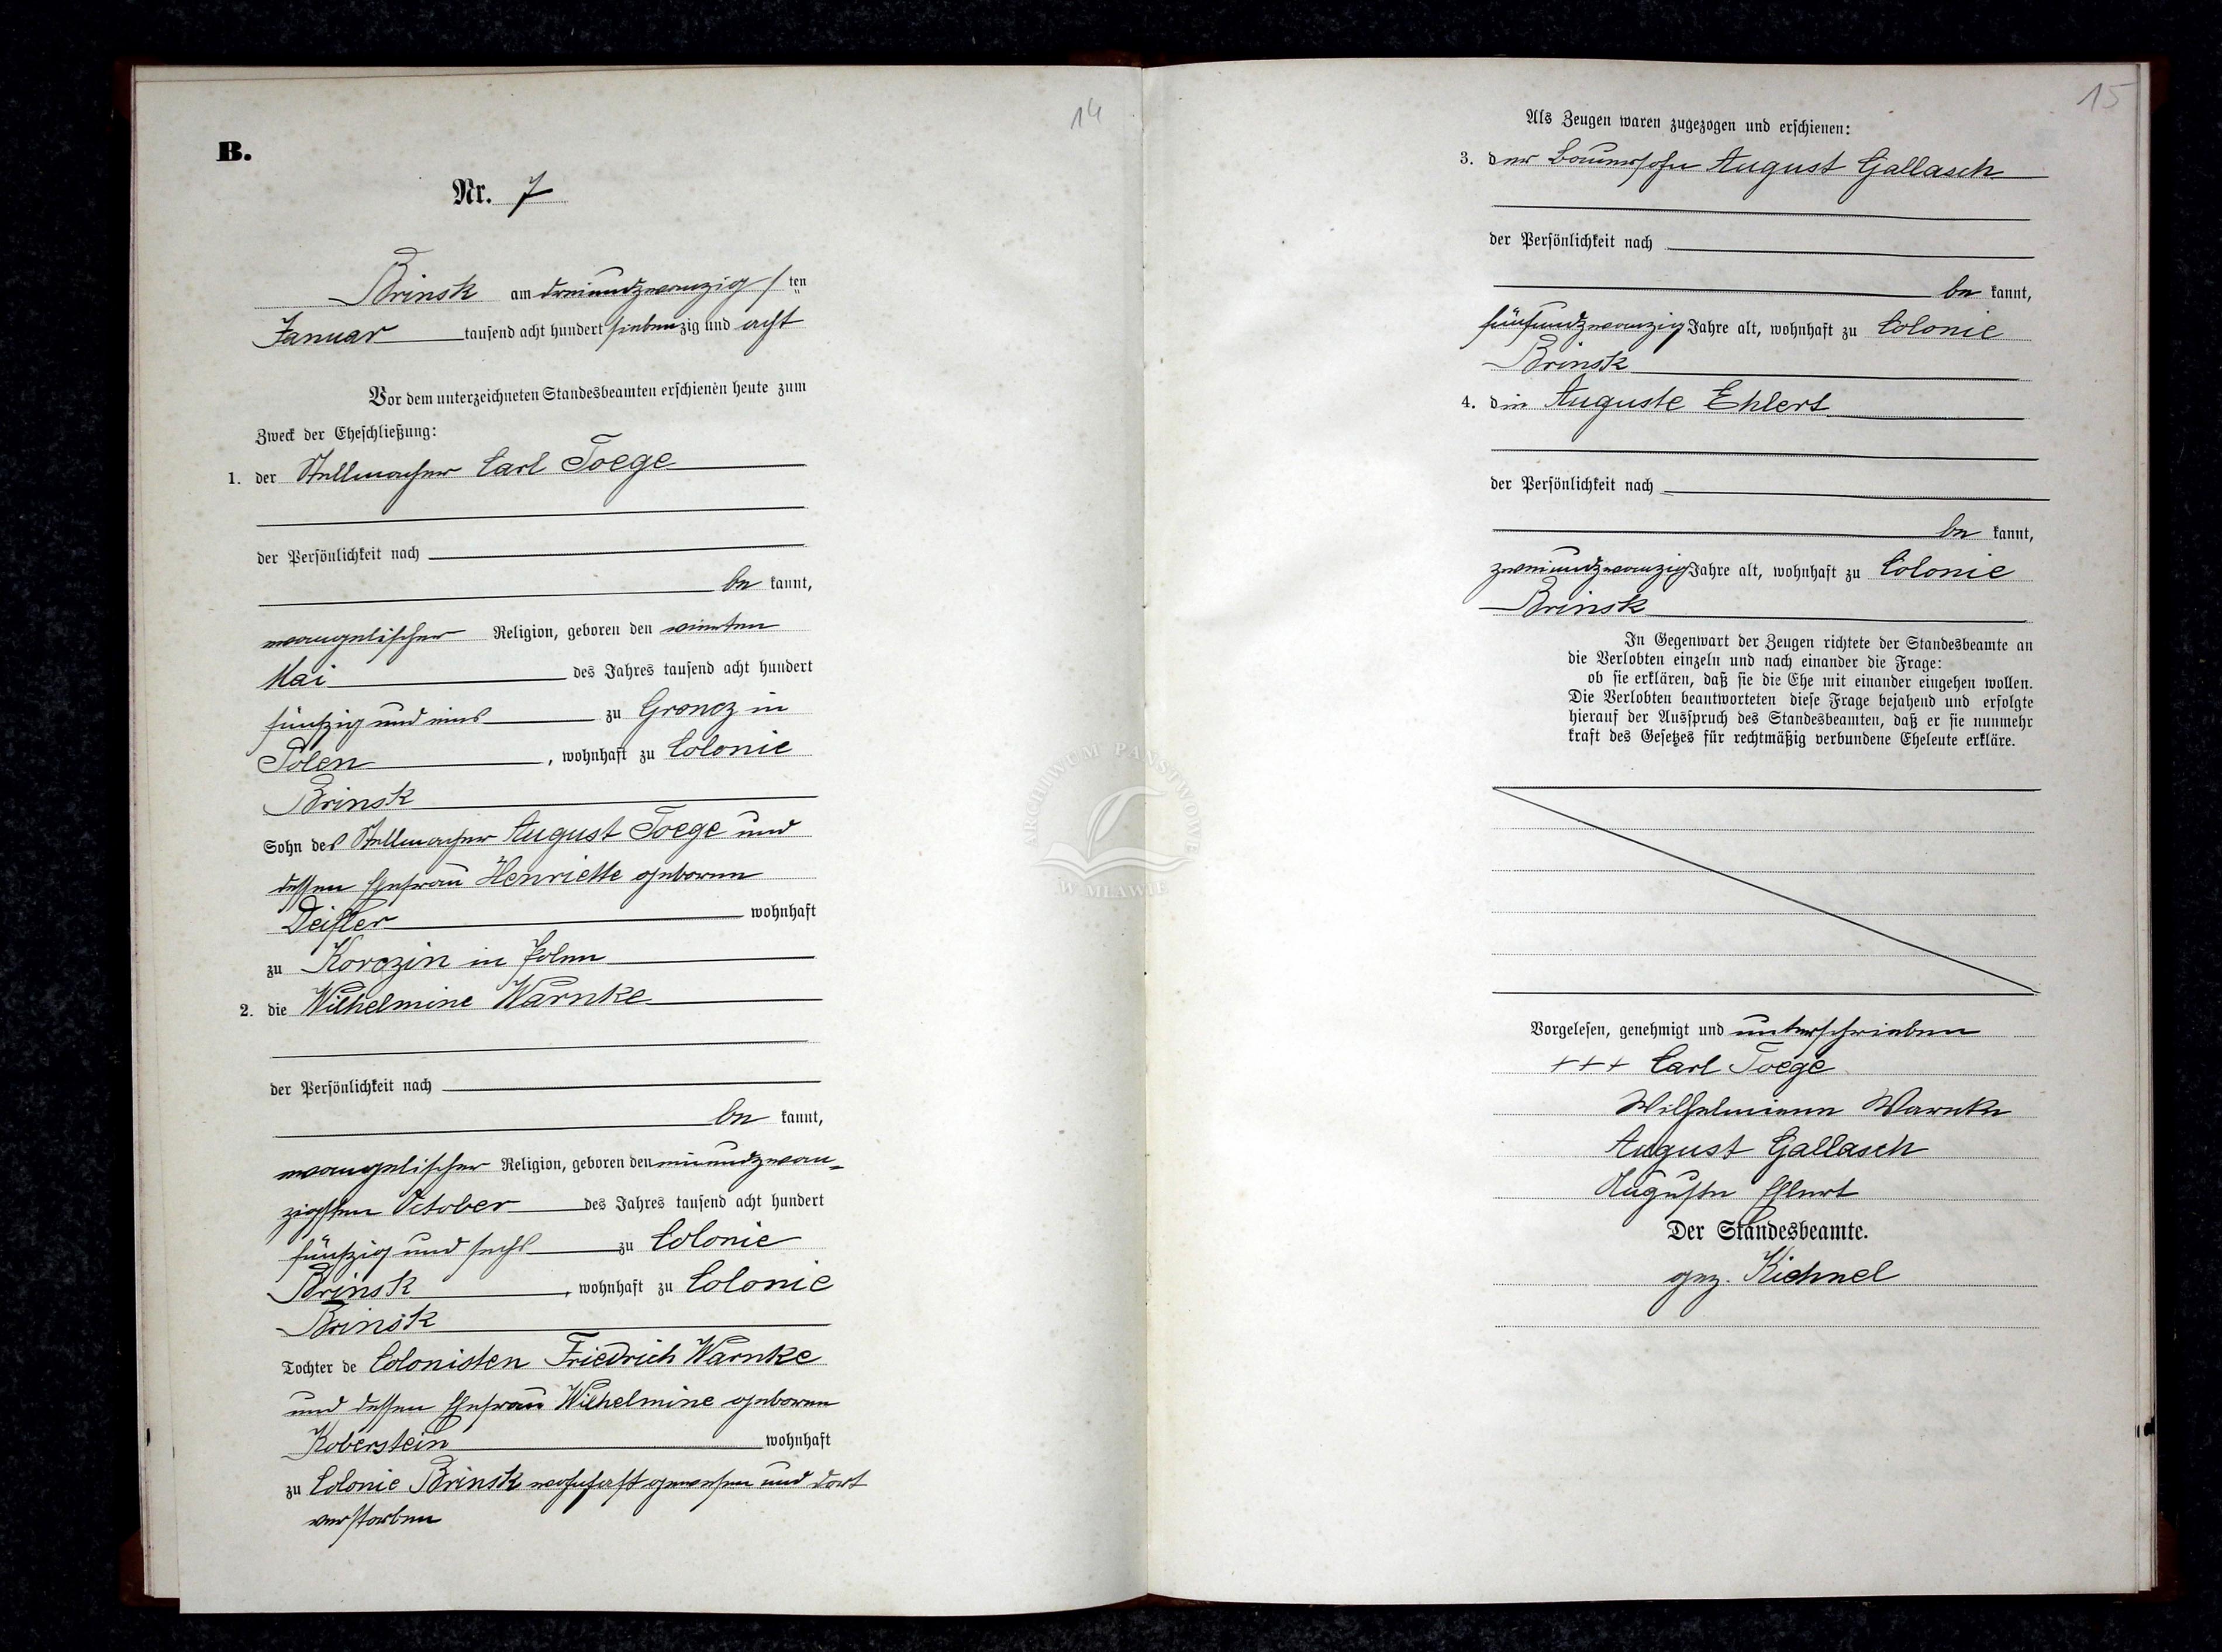 14
B.
Nr. 7
Brinsk am dreiundzwanzigsten
Januar tausend acht hundert siebenzig und acht
Vor dem unterzeichneten Standesbeamten erschienen heute zum
Zweck der Eheschließung:
1. der Stellmacher Carl Toege
der Persönlichkeit nach
be kannt,
evangelischer Religion, geboren den vierten
Mai des Jahres tausend acht hundert
fünfzig und eins zu Groncz in
Polen, wohnhaft zu Colonie
Brinsk
Sohn des Stellmacher August Toege und
dessen Ehefrau Henriette geboren
wohnhaft
zu Korczin in Polen
2. die Wilhelmine Warnke
der Persönlichkeit nach
be kannt,
evangelischer Religion, geboren den einundzwan-
zigsten October des Jahres tausend acht hundert
fünfzig und sechs zu Colonie
Brinsk, wohnhaft zu Colonie
Brinsk
Tochter de Colonisten Friedrich Warnke
und dessen Ehefrau Wilhelmine geboren
Koberstein wohnhaft
zu Colonie Brinsk wohnhaft gewesen und dort
verstorben
15
Als Zeugen waren zugezogen und erschienen:
3. der Bauersohn August Gallasch
der Persönlichkeit nach
be kannt,
fünfundzwanzig Jahre alt, wohnhaft zu Colonie
Brinsk
4. die Auguste Ehlert
der Persönlichkeit nach
be kannt,
zweiundzwanzig Jahre alt, wohnhaft zu Colonie
Brinsk
In Gegenwart der Zeugen richtete der Standesbeamte an
die Verlobten einzeln und nach einander die Frage:
ob sie erklären, daß sie die Ehe mit einander eingehen wollen.
Die Verlobten beantworteten diese Frage bejahend und erfolgte
hierauf der Ausspruch des Standesbeamten, daß er sie nunmehr
kraft des Gesetzes für rechtmäßig verbundene Eheleute erkläre.
Vorgelesen, genehmigt und unterschrieben
+++ Carl Toege
Wilhelmine Warnke
August Gallasch
Auguste Ehlert
Der Standesbeamte.
gez.
ARCHIWUM PAŃSTWOWE
W MŁAWIE